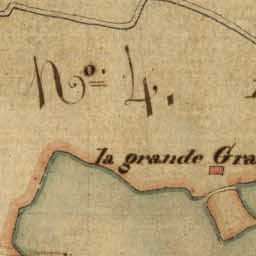 No. 4.
la grande Gra